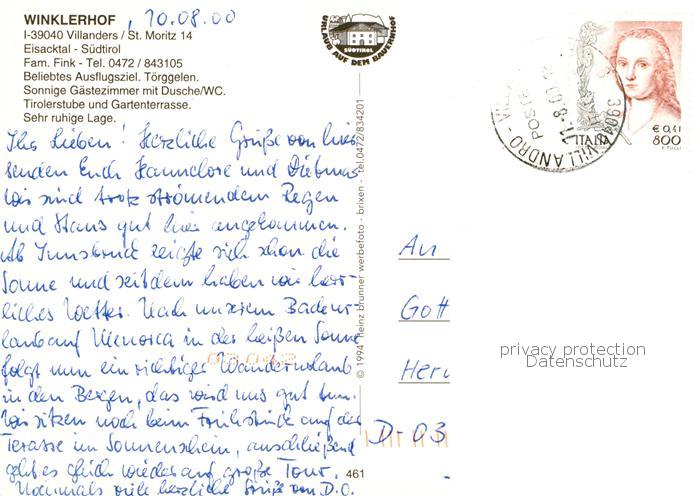 WINKLERHOF , 10.08.00
I-39040 Villanders / St. Moritz 14
Eisacktal - Südtirol
Fam. Fink - Tel. 0472 / 843105
Beliebtes Ausflugsziel. Törggelen.
Sonnige Gästezimmer mit Dusche/WC.
Tirolerstube und Gartenterrasse.
Sehr ruhige Lage.
Ihr Lieben! Herzliche Grüße von hier
senden Euch Hannelore und Dietmar.
Wir sind trotz strömendem Regen
und Staus gut hier angekommen.
Ab Innsbruck zeigte sich schon die
Sonne und seitdem haben wir herr-
liches Wetter. Nach unserem Badeur-
laub auf Menorca in der heißen Sonne
folgt nun ein richtiger Wanderurlaub
in den Bergen, das wird uns gut tun.
Wir sitzen noch beim Frühstück auf der
Terasse im Sonnenschein, anschließend
geht es gleich wieder auf große Tour.
Nochmals viele herzliche Grüße von D.O.
URLAUB AUF DEM BAUERNHOF
SÜDTIROL
© 1994 heinz brunner werbefoto - brixen - tel.0472/834201
461
POSTE
VILLANDRO
11-8-00
€ 0,41
ITALIA 800
An
Gott
Herr
D-03
privacy protection
Datenschutz